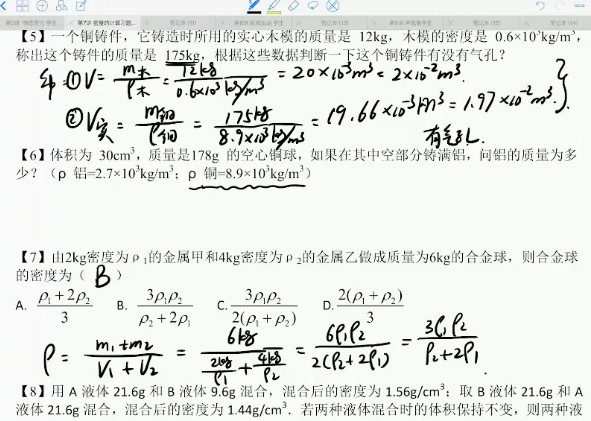 【5】一个铜铸件，它铸造时所用的实心木模的质量是 12kg，木模的密度是 0.6×10³kg/m³，
称出这个铸件的质量是 175kg，根据这些数据判断一下这个铜铸件有没有气孔？
解 ① V = m木/ρ木 = 12kg/0.6×10³kg/m³ = 20×10⁻³m³ = 2×10⁻²m³.
② V实 = m铜/ρ铜 = 175kg/8.9×10³kg/m³ = 19.66×10⁻³m³ = 1.97×10⁻²m³.
有气孔.
【6】体积为 30cm³，质量是178g 的空心铜球，如果在其中空部分铸满铝，问铝的质量为多
少？（ρ 铝=2.7×10³kg/m³；ρ 铜=8.9×10³kg/m³）
【7】由2kg密度为ρ₁的金属甲和4kg密度为ρ₂的金属乙做成质量为6kg的合金球，则合金球
的密度为（ B ）
A. ρ₁+2ρ₂/3 B. 3ρ₁ρ₂/ρ₂+2ρ₁ C. 3ρ₁ρ₂/2(ρ₁+ρ₂) D. 2(ρ₁+ρ₂)/3
ρ = m₁+m₂/V₁+V₂ = 6kg/2kg/ρ₁+4kg/ρ₂ = 6ρ₁ρ₂/2(ρ₂+2ρ₁) = 3ρ₁ρ₂/ρ₂+2ρ₁
【8】用 A 液体 21.6g 和 B 液体 9.6g 混合，混合后的密度为 1.56g/cm³；取 B 液体 21.6g 和 A
液体 21.6g 混合，混合后的密度为 1.44g/cm³．若两种液体混合时的体积保持不变，则两种液